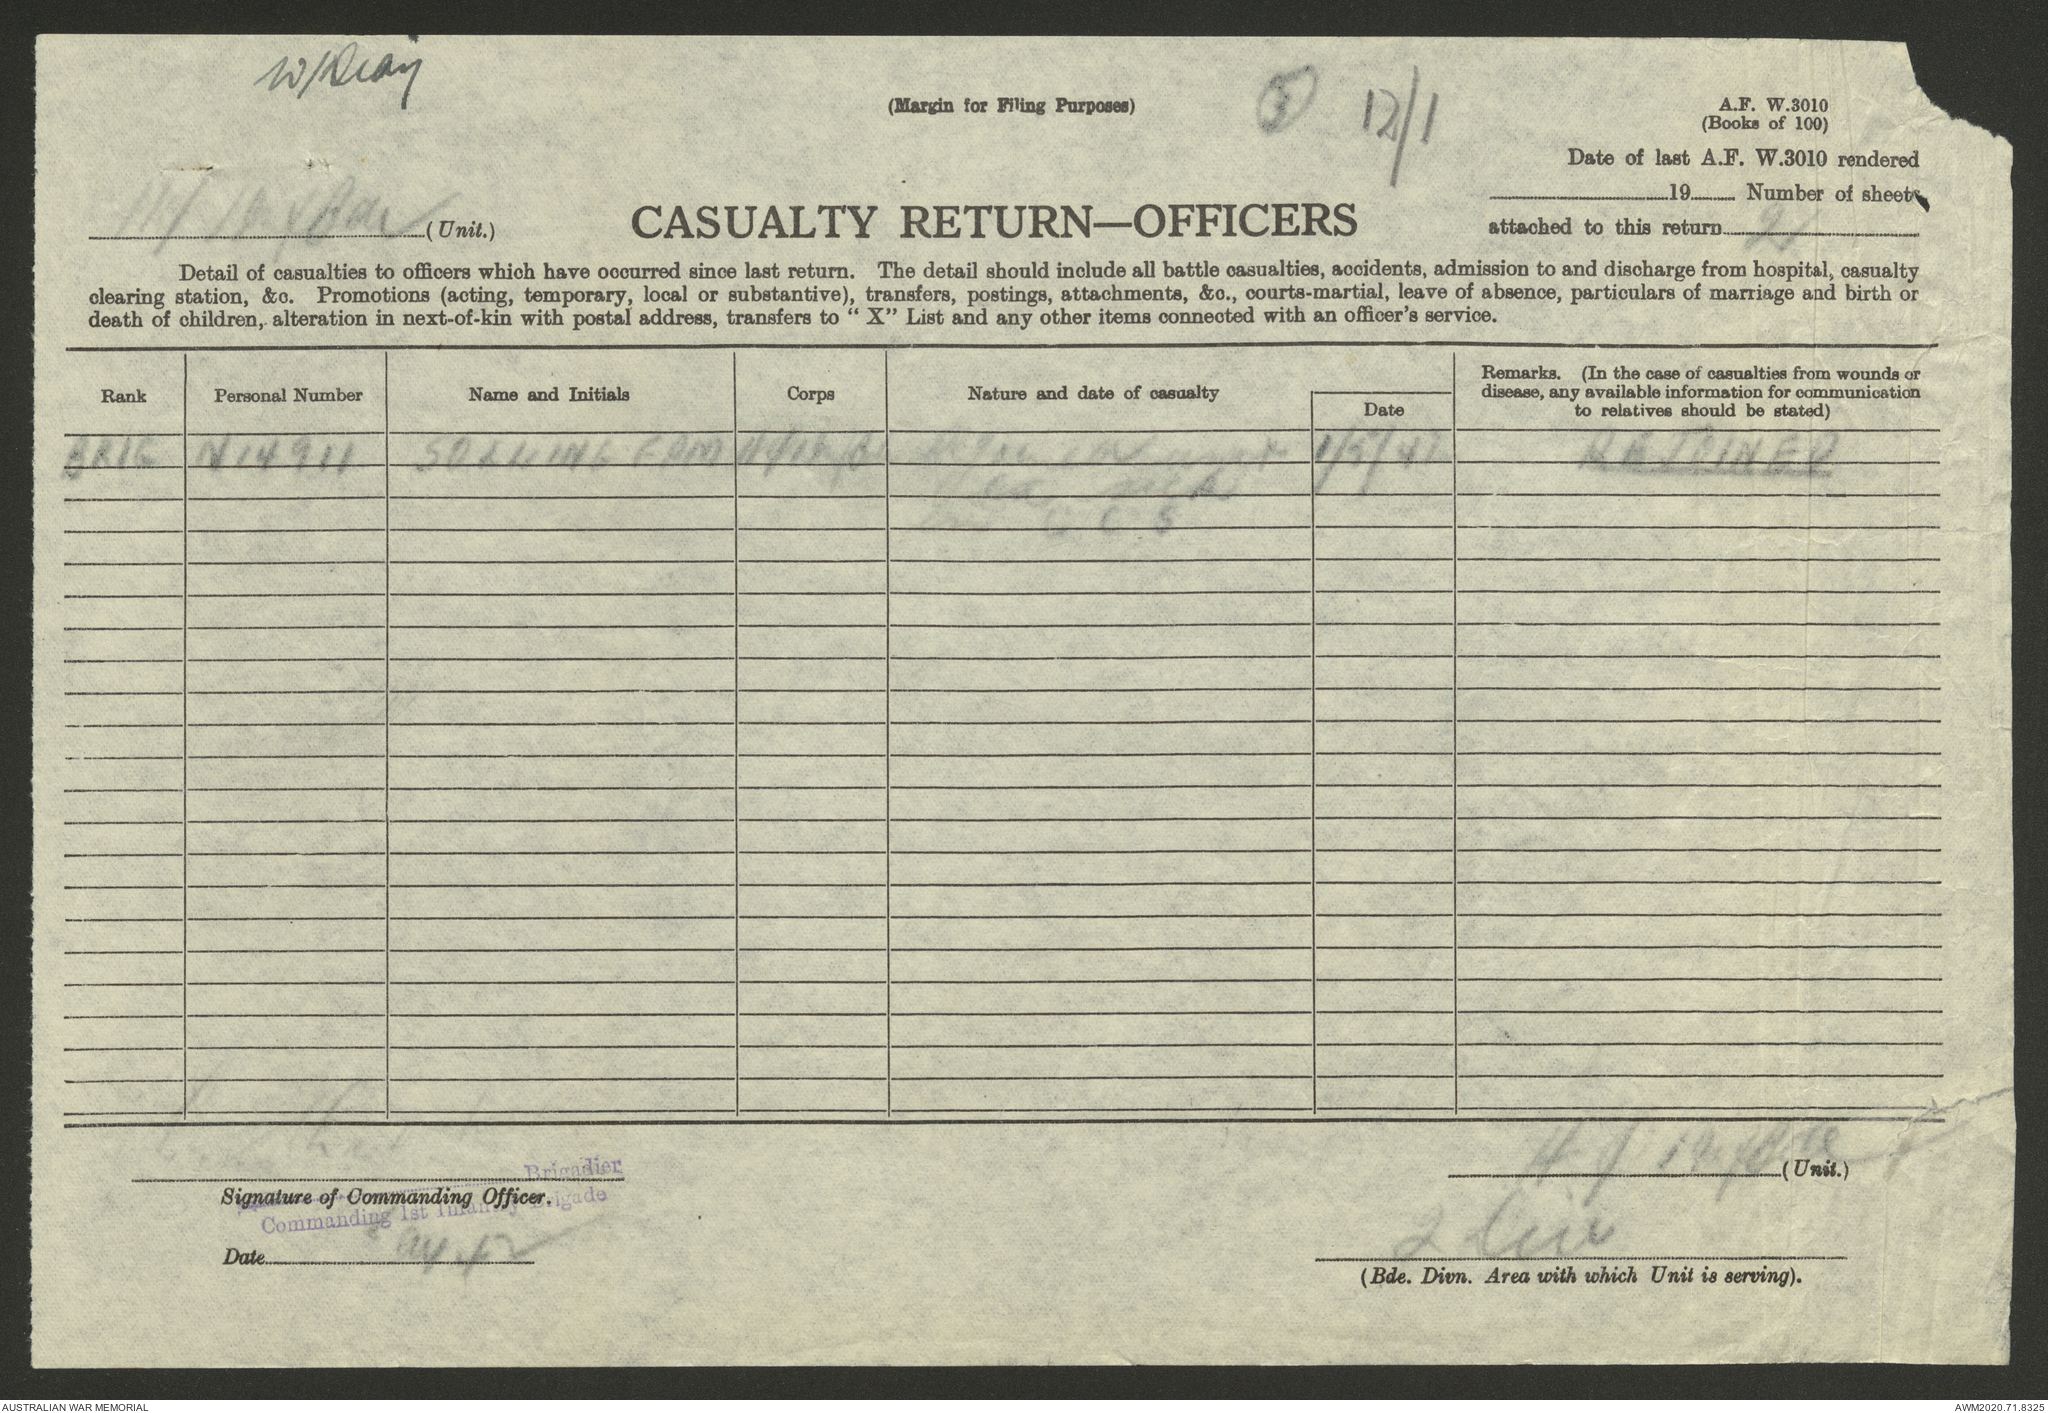 W/Diary
(Margin for Filing Purposes)
12/1
A.F. W.3010
(Books of 100)
Date of last A.F. W.3010 rendered
19 Number of sheets
attached to this return 2
(Unit.)
CASUALTY RETURN—OFFICERS
Detail of casualties to officers which have occurred since last return. The detail should include all battle casualties, accidents, admission to and discharge from hospital, casualty
clearing station, &c. Promotions (acting, temporary, local or substantive), transfers, postings, attachments, &c., courts-martial, leave of absence, particulars of marriage and birth or
death of children, alteration in next-of-kin with postal address, transfers to “ X” List and any other items connected with an officer's service.
Rank Personal Number Name and Initials Corps Nature and date of casualty Date Remarks. (In the case of casualties from wounds or
disease, any available information for communication
to relatives should be stated)
BRIG N14911 1/5/42 REJOINED
C C S
Brigadier
Signature of Commanding Officer.
Commanding 1st Infantry Brigade
Date
(Unit.)
(Bde. Divn. Area with which Unit is serving).
AUSTRALIAN WAR MEMORIAL
AWM2020.71.8325